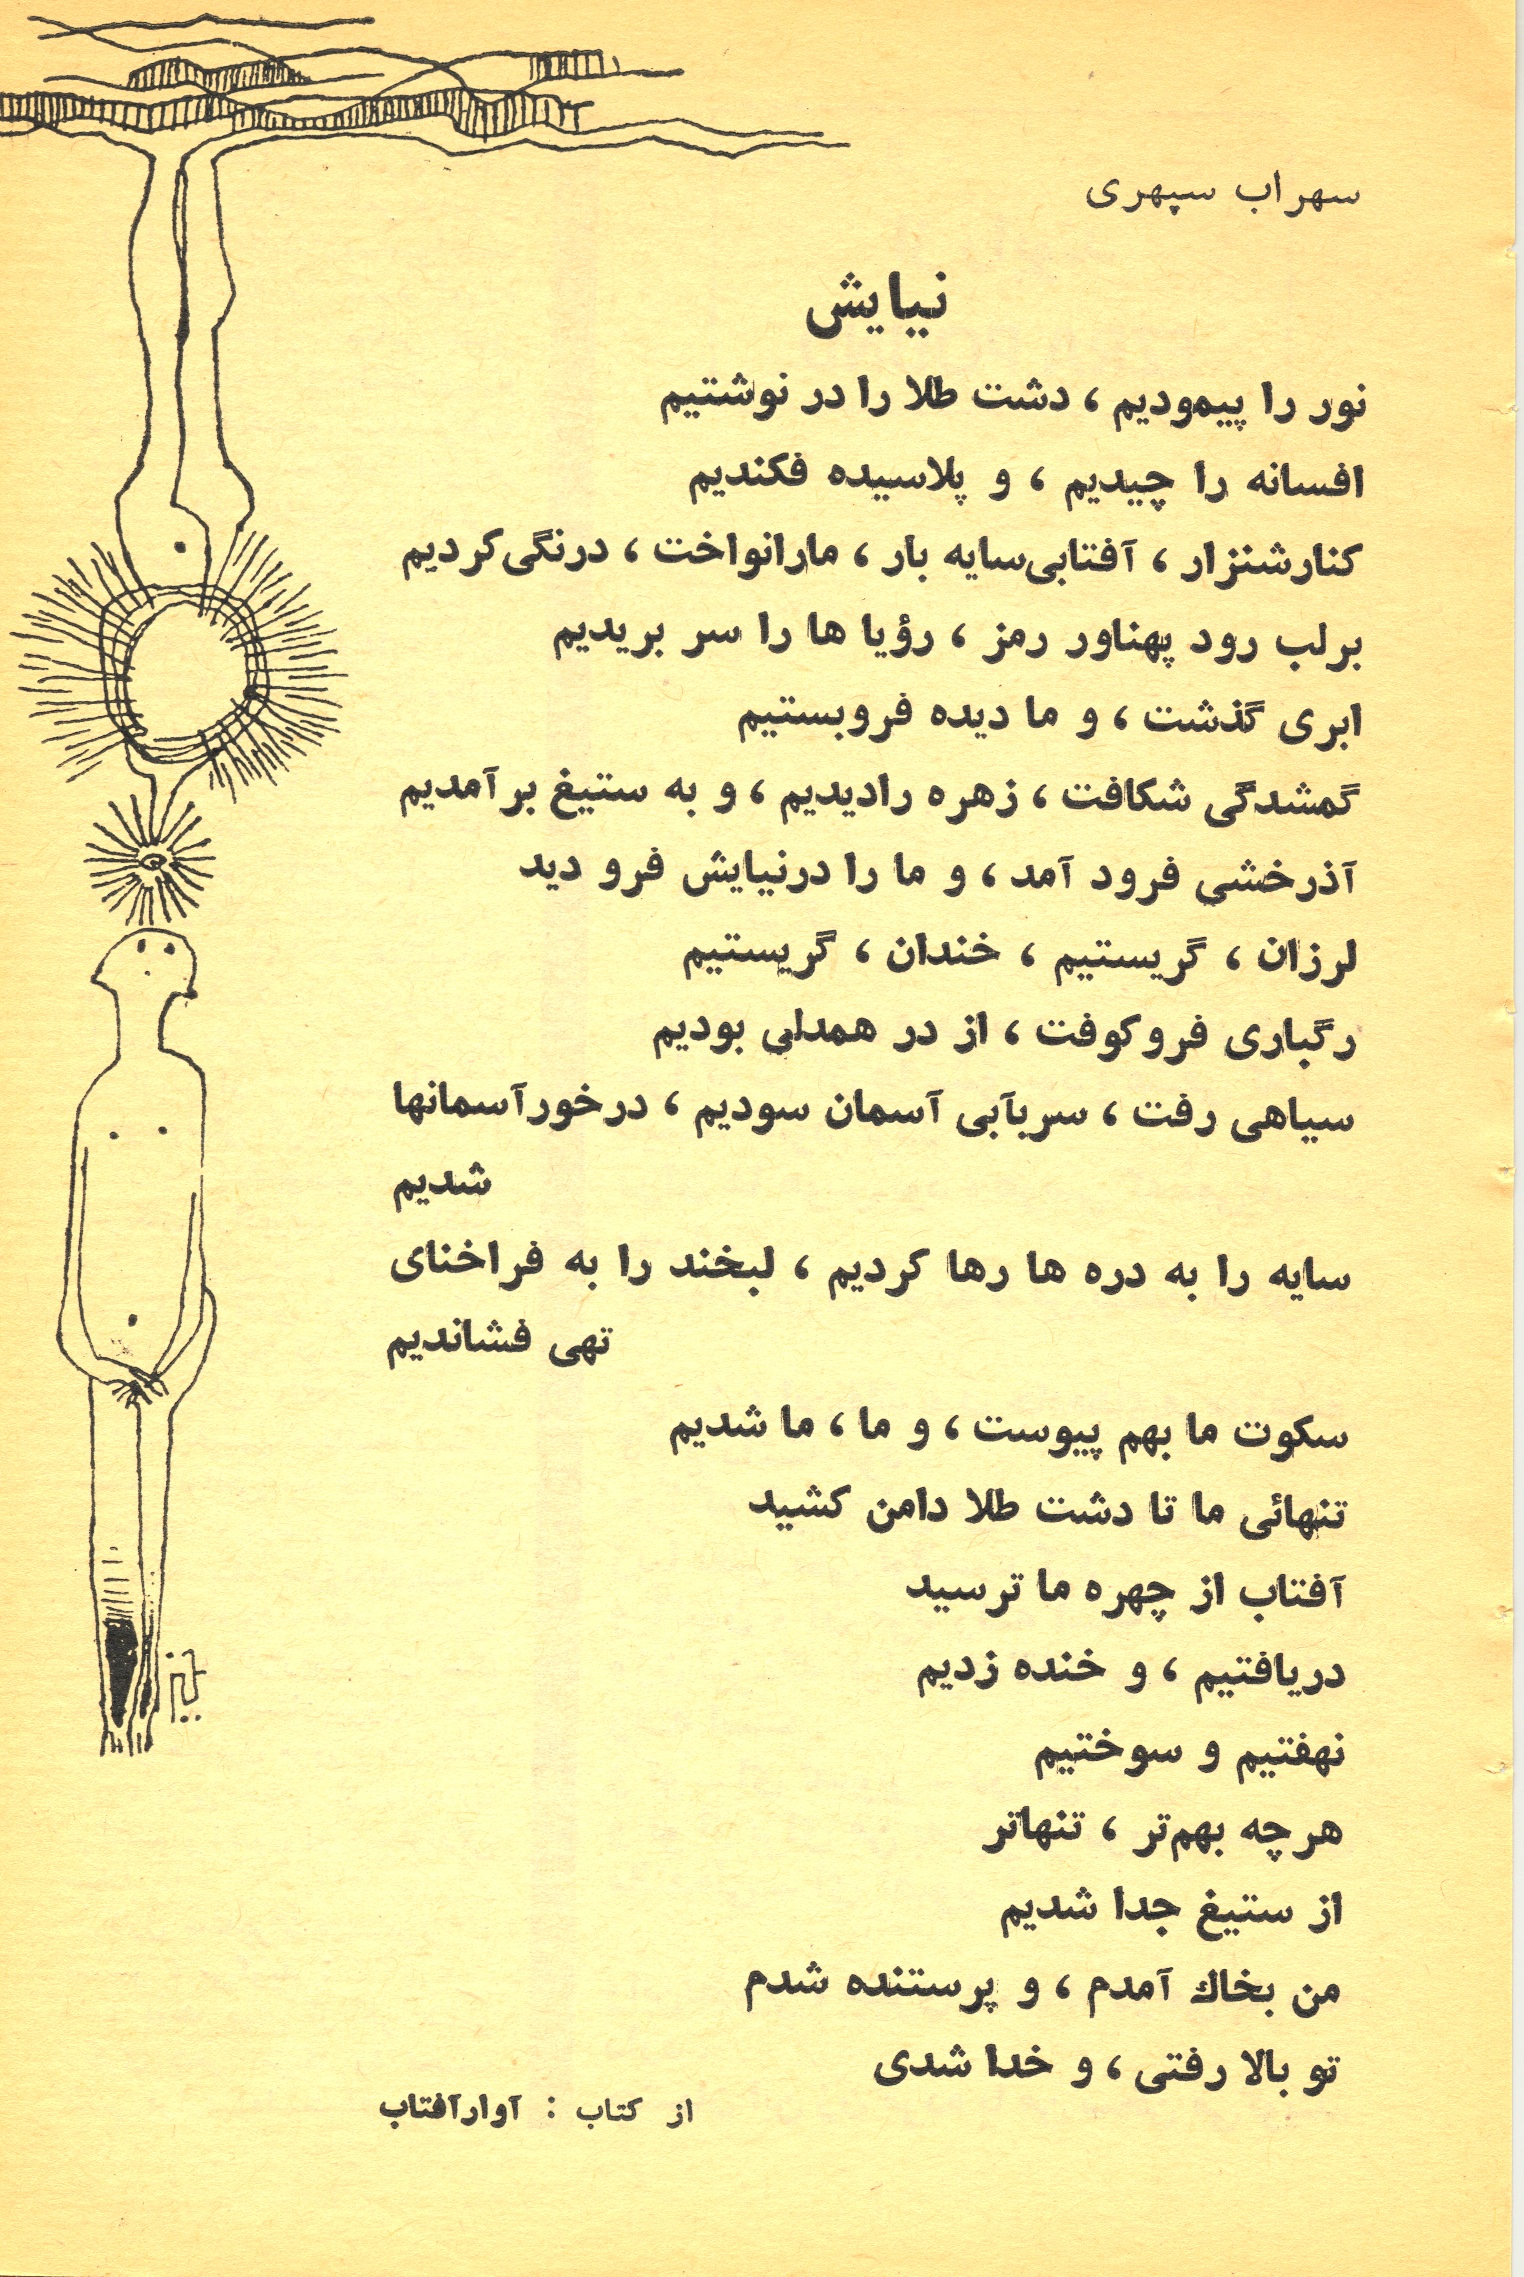 سهراب سپهری
نیایش
نور را پیمودیم ، دشت طلا را در نوشتیم
افسانه را چیدیم ، و پلاسیده فکندیم
کنارشنزار ، آفتابی‌سایه بار ، مارانواخت ، درنگی‌کردیم
برلب رود پهناور رمز ، رؤیا ها را سر بریدیم
ابری گذشت ، و ما دیده فروبستیم
گمشدگی شکافت ، زهره رادیدیم ، و به ستیغ برآمدیم
آذرخشی فرود آمد ، و ما را درنیایش فرو دید
لرزان ، گریستیم ، خندان ، گریستیم
رگباری فروکوفت ، از در همدلی بودیم
سیاهی رفت ، سربآبی آسمان سودیم ، درخورآسمانها
شدیم
سایه را به دره ها رها کردیم ، لبخند را به فراخنای
تهی فشاندیم
سکوت ما بهم پیوست ، و ما ، ما شدیم
تنهائی ما تا دشت طلا دامن کشید
آفتاب از چهره ما ترسید
دریافتیم ، و خنده زدیم
نهفتیم و سوختیم
هرچه بهم‌تر ، تنهاتر
از ستیغ جدا شدیم
من بخاك آمدم ، و پرستنده شدم
تو بالا رفتی ، و خدا شدی
از کتاب : آوارآفتاب